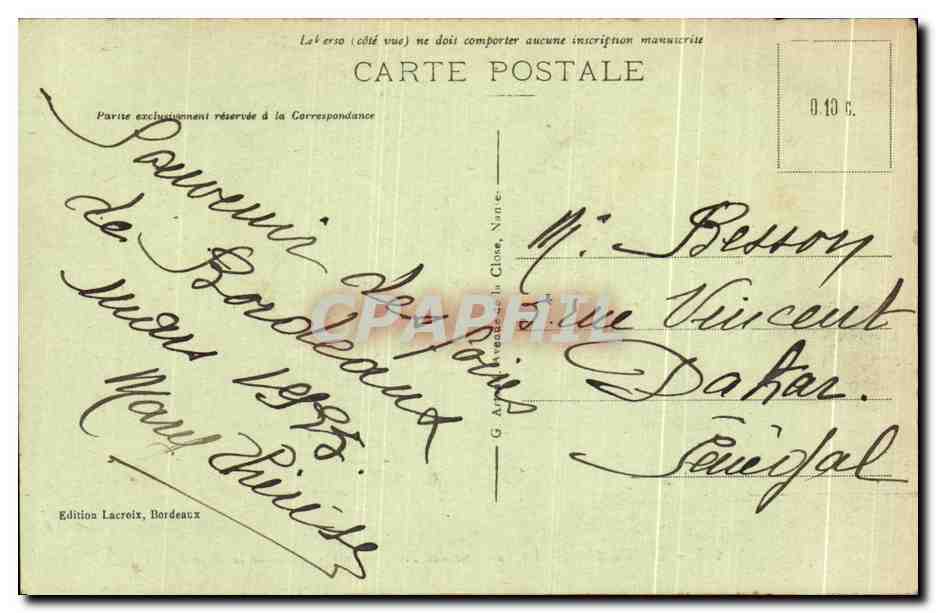 Le Verso (côté vue) ne doit comporter aucune inscription manuscrite
CARTE POSTALE
0.10 c.
Partie exclusivement réservée à la Correspondance
Souvenir de foires
de Bordeaux
mars 1935
Mary Thérèse
Edition Lacroix, Bordeaux
G. Avenue de la Close, Nantes
Mr. Besson
5. rue Vincent
Dakar.
Sénégal
CPAPHIL